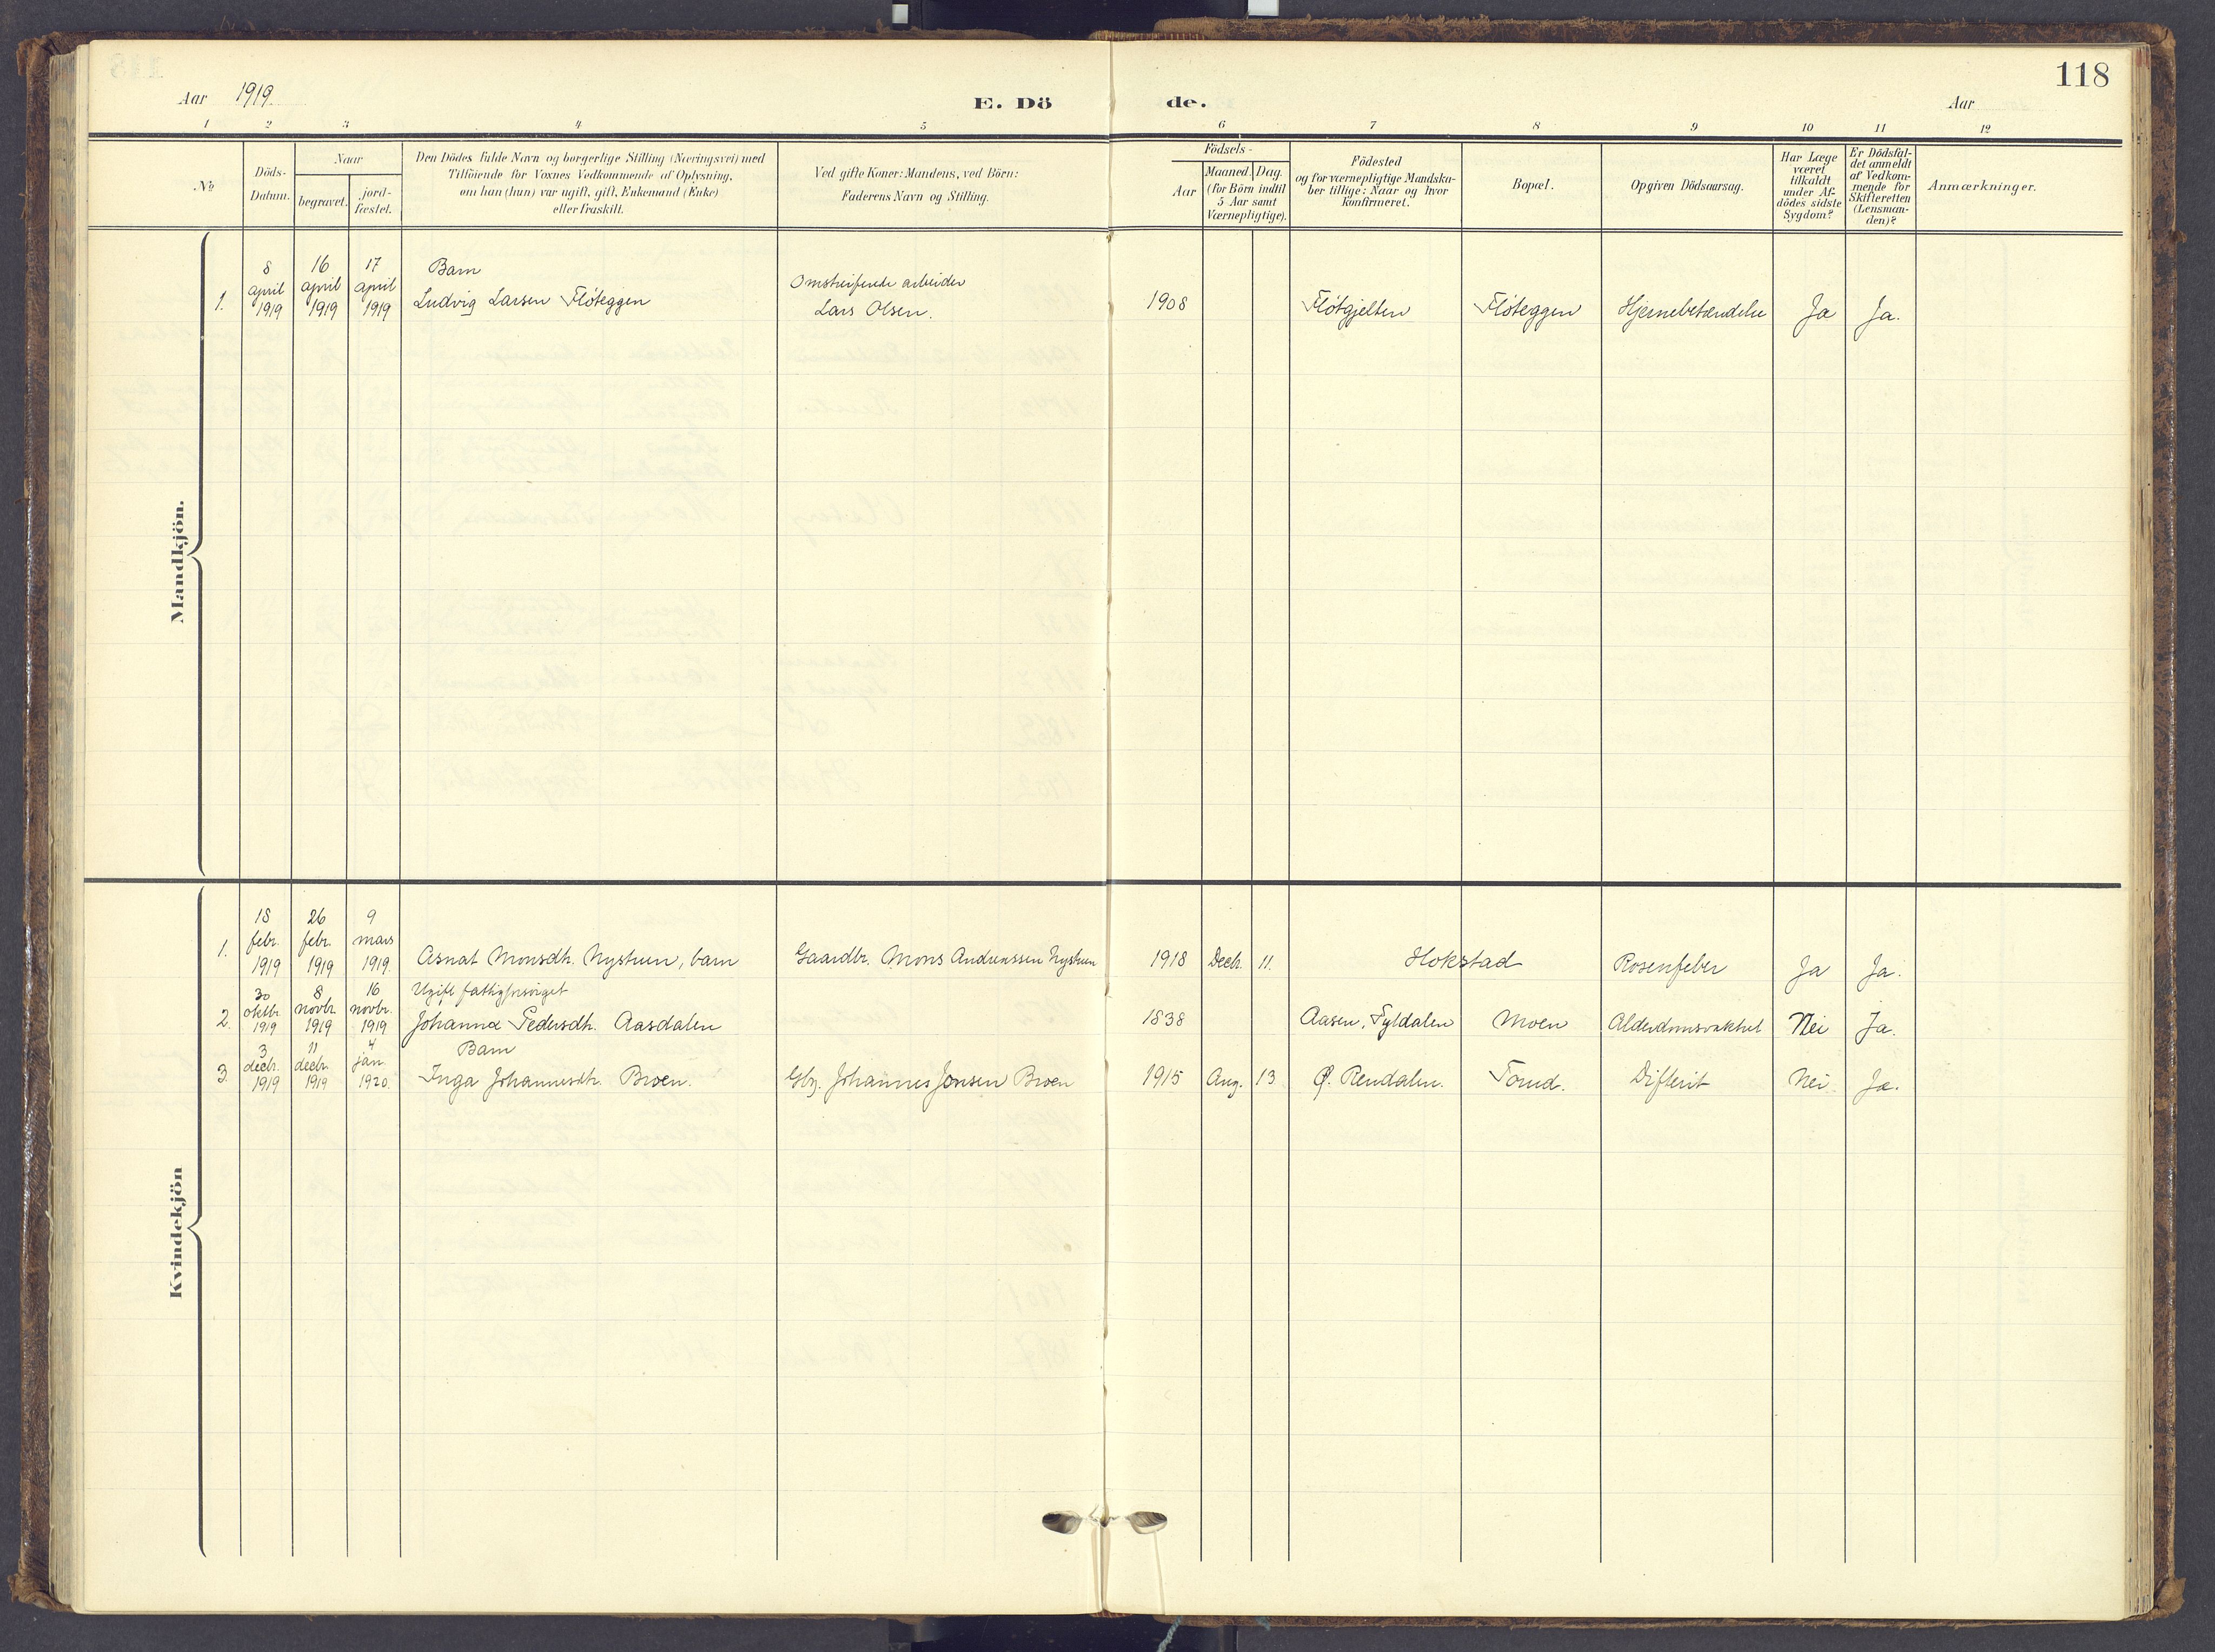 118
Aar 1919.
E. Dö de.
Aar
1 2 3 4 5 6 7 8 9 10 11 12
No
Döds-
Datum.
Naar
begravet.
jord-
fæstet.
Den Dödes fulde Navn og borgerlige Stilling (Næringsvei) med
Tilföiende for Voxnes Vedkommende af Oplysning,
om han (hun) var ugift, gift, Enkemand (Enke)
eller fraskilt.
Ved gifte Koner: Mandens, ved Börn:
Faderens Navn og Stilling.
Födsels-
Aar
Maaned. Dag.
(for Börn indtil
5 Aar samt
Værnepligtige).
Födested
og for værnepligtige Mandska-
ber tillige: Naar og hvor
konfirmeret.
Bopæl.
Opgiven Dödsaarsag.
Har Læge
været
tilkaldt
under Af-
dödes sidste
Sygdom?
Er Dödsfal-
det anmeldt
af Vedkom-
mende for
Skifteretten
(Lensman-
den)?
Anmærkninger.
Mandkjön.
8 16 17 Barn Omstreifende arbeider
april april april
1. 1919 1919 1919 Ludvig Larsen Fløteggen Lars Olsen. 1908 Fløtgjelten Fløteggen Hjernebetændelse Ja Ja.
Kvindekjön
18 26 9
febr. febr. mars
1. 1919 1919 1919. Asnat Monsdtr. Nystuen, barn Gaardbr. Mons Andreassen Nystuen 1918 Decb. 11. Hokstad Rosenfeber Ja Ja.
30 8 16 Ugift fattigforsørget
oktbr. novbr. novbr.
2. 1919 1919 1919 Johanna Pedersdtr. Aasdalen 1838 Aasen, Tyldalen Moen Alderdomssvakhet Nei Ja.
3 11 4 Barn
decbr. decbr. jan.
3. 1919 1919 1920. Inga Johannesdtr. Broen. Gbr. Johannes Jonsen Broen 1915 Aug. 13 Ø. Rendalen. Difterit Nei Ja.